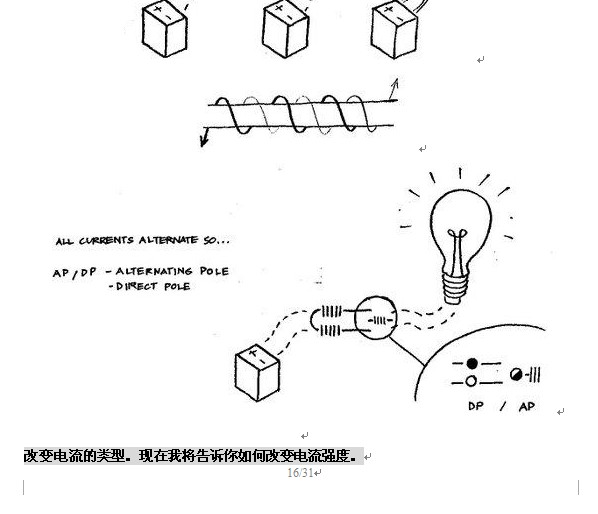 + -
+ -
+ -
ALL CURRENTS ALTERNATE SO...
AP/DP - ALTERNATING POLE
- DIRECT POLE
+ -
DP / AP
改变电流的类型。现在我将告诉你如何改变电流强度。
16/31